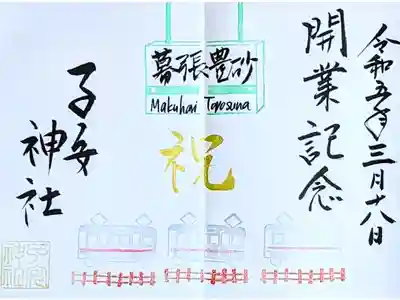 令和五年三月十八日
開業記念
幕張豊砂
Makuhai Toyosuna
祝
子安
神社